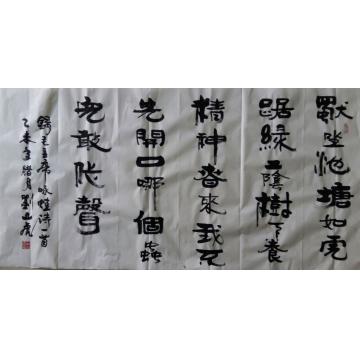 獨坐池塘如虎
踞綠蔭樹下養
精神春來我不
先開口哪個蟲
兒敢作聲
錄毛主席咏蛙诗一首
乙未年腊月劉山虎